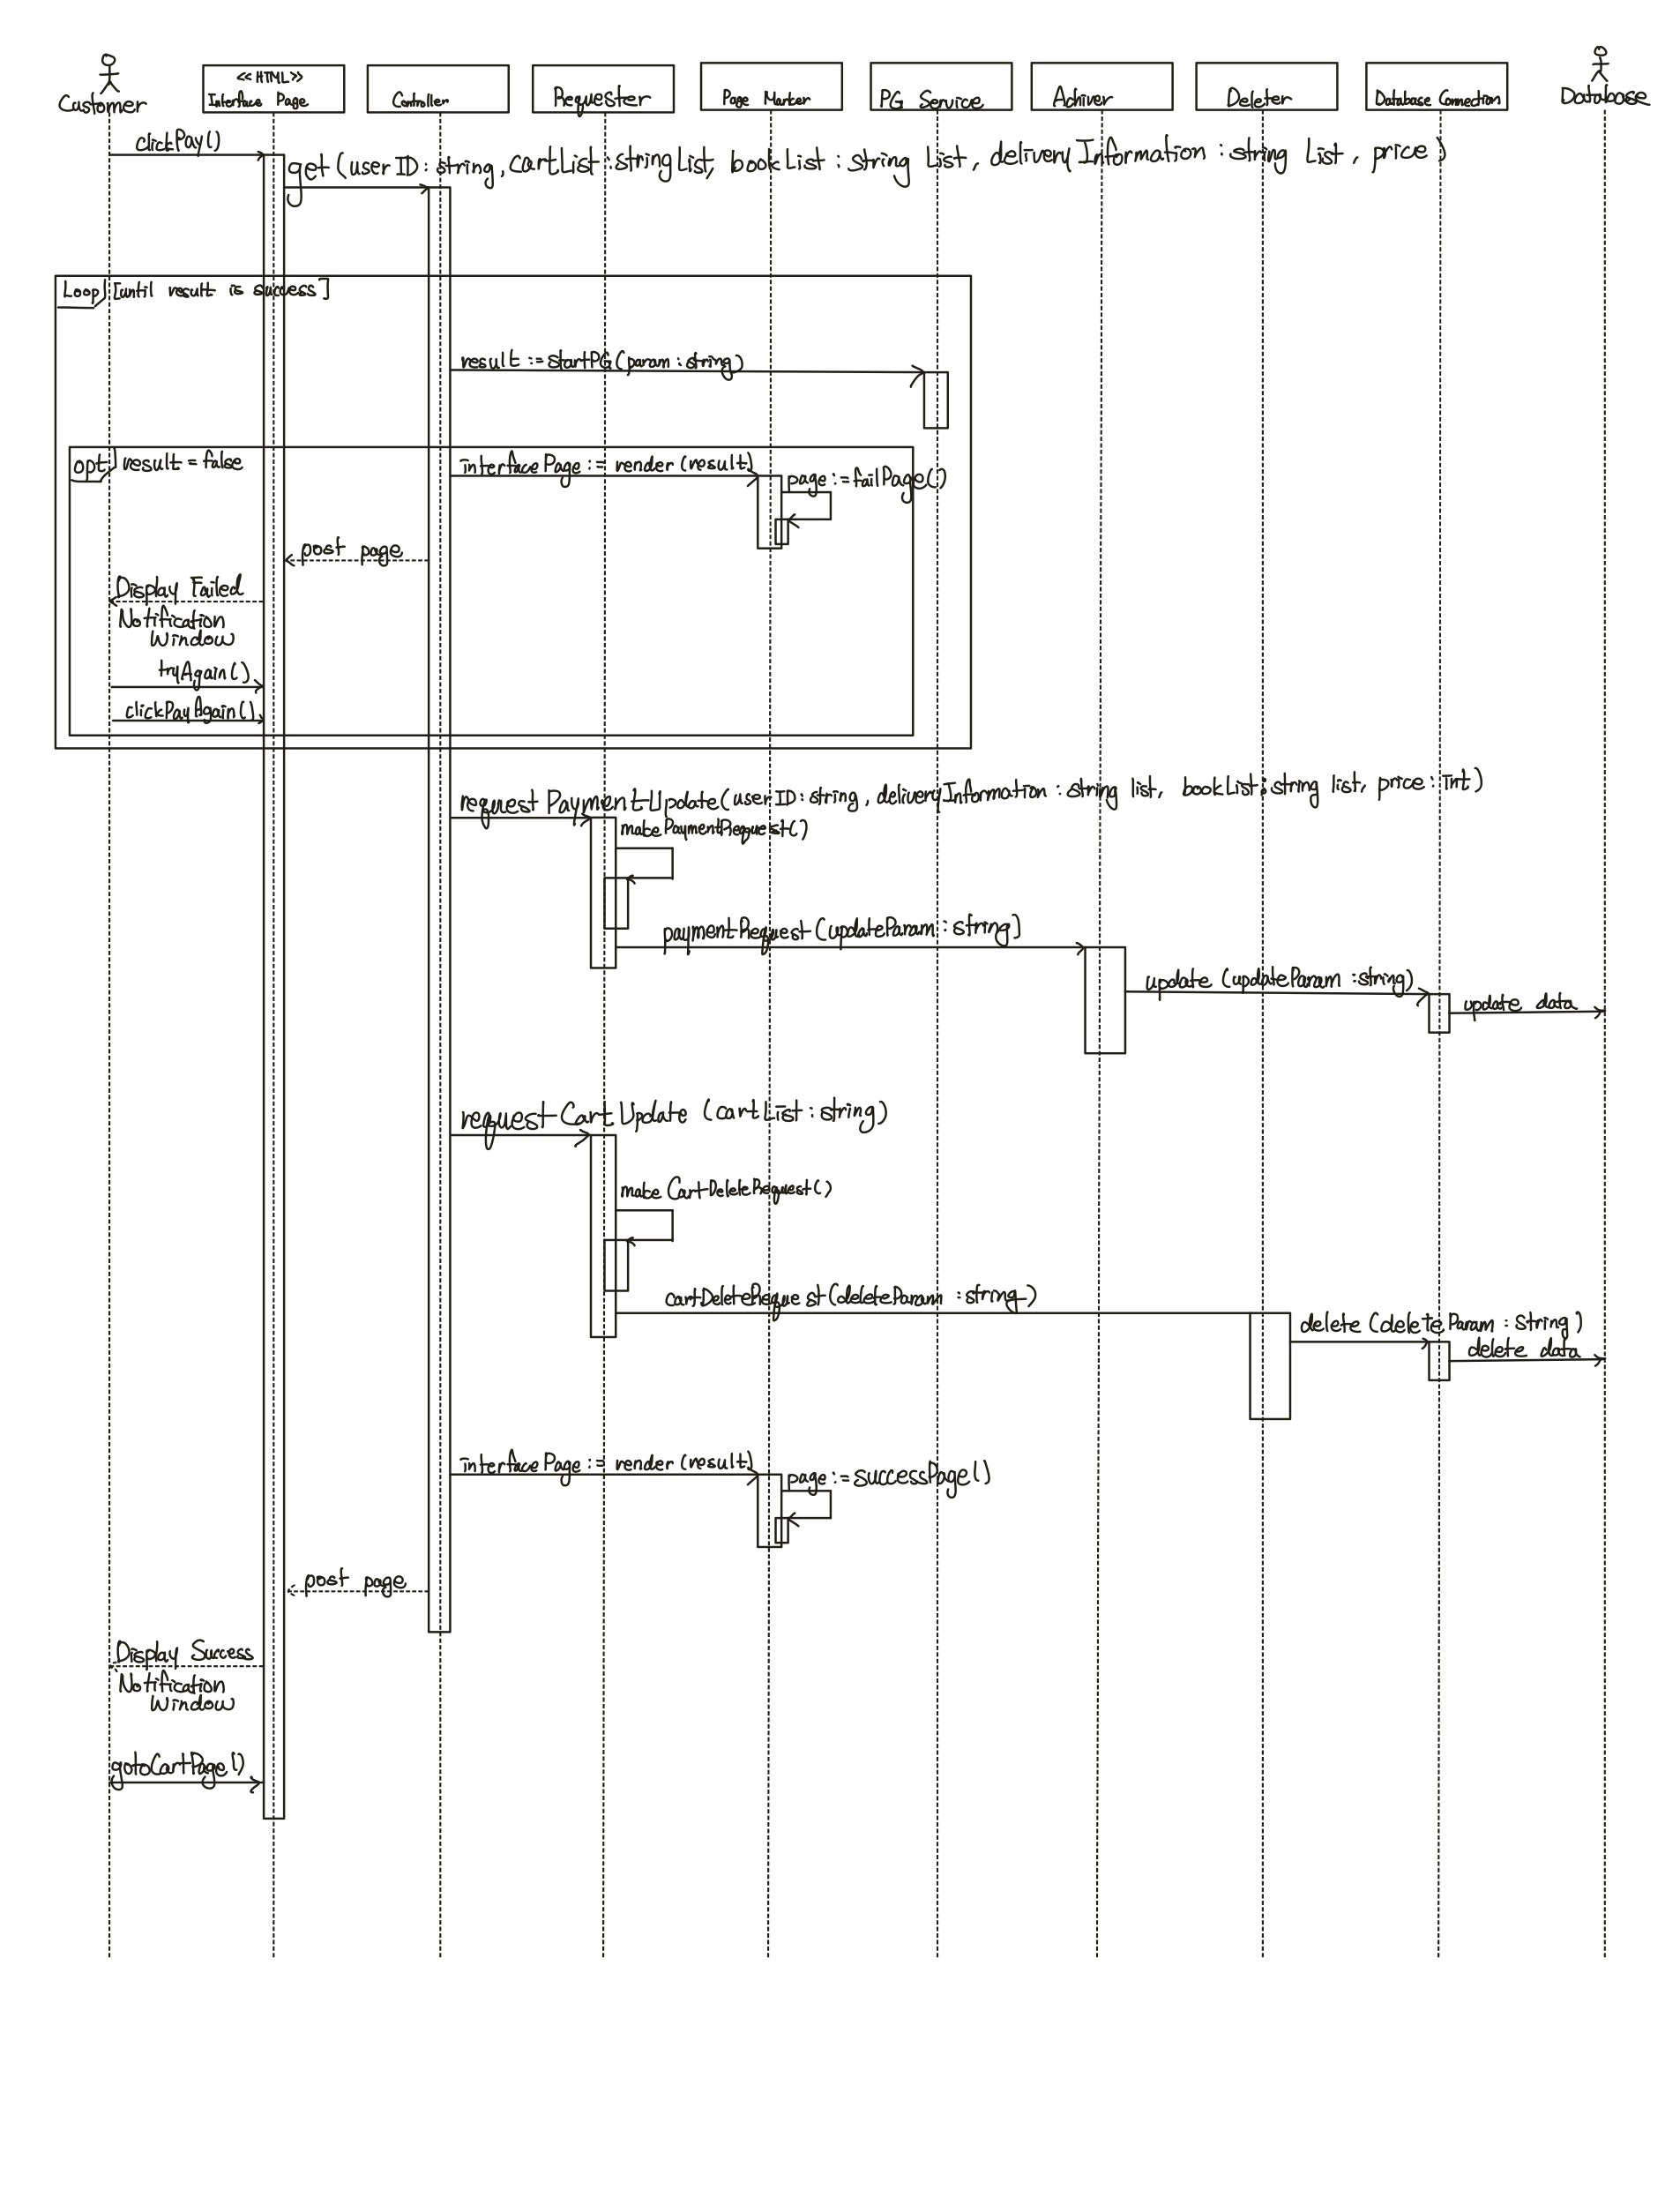 Customer
<< HTML >>
Interface Page
Controller
Requester
Page Marker
PG Service
Achiver
Deleter
Database Connection
Database
clickPay()
get (user ID : string, cartList : string List, book List : string List, delivery Information : string List, price)
Loop [until result is success]
result := startPG (param : string)
opt result = false
interface Page := render (result)
page := failPage()
post page
Display Failed
Notification
Window
tryAgain()
clickPayAgain()
request PaymentUpdate (user ID : string, deliveryInformation : string list, book List : string list, price : Int)
make PaymentRequest()
paymentRequest (updateParam : string)
update (updateParam : string)
update data
requestCart Update (cartList : string)
make CartDeleteRequest()
cartDeleteRequest (deleteParam : string)
delete (delete Param : string)
delete data
interface Page := render (result)
page := successPage()
post page
Display Success
Notification
Window
gotoCartPage()